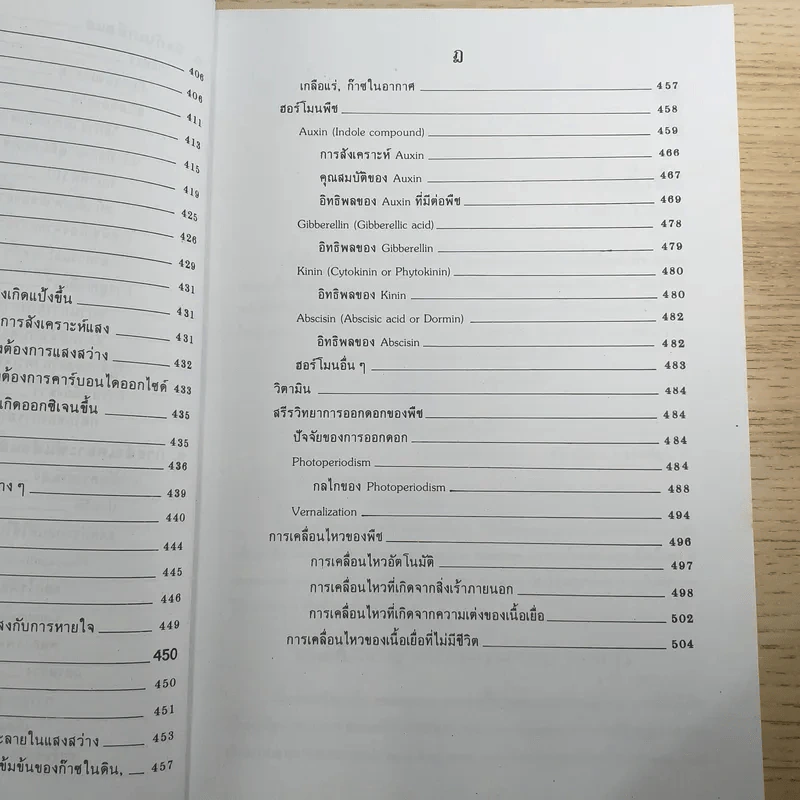 406
406
411
413
415
419
425
426
429
431
งเกิดแป้งขึ้น 431
การสังเคราะห์แสง 431
งต้องการแสงสว่าง 432
งต้องการคาร์บอนไดออกไซด์ 433
เกิดออกซิเจนขึ้น 435
435
436
าง ๆ 439
440
444
445
446
สงกับการหายใจ 449
450
450
451
ะลายในแสงสว่าง 453
ข้มข้นของก๊าซในดิน, 457
ฏ
เกลือแร่, ก๊าซในอากาศ 457
ฮอร์โมนพืช 458
Auxin (Indole compound) 459
การสังเคราะห์ Auxin 466
คุณสมบัติของ Auxin 467
อิทธิพลของ Auxin ที่มีต่อพืช 469
Gibberellin (Gibberellic acid) 478
อิทธิพลของ Gibberellin 479
Kinin (Cytokinin or Phytokinin) 480
อิทธิพลของ Kinin 480
Abscisin (Abscisic acid or Dormin) 482
อิทธิพลของ Abscisin 482
ฮอร์โมนอื่น ๆ 483
วิตามิน 484
สรีรวิทยาการออกดอกของพืช 484
ปัจจัยของการออกดอก 484
Photoperiodism 484
กลไกของ Photoperiodism 488
Vernalization 494
การเคลื่อนไหวของพืช 496
การเคลื่อนไหวอัตโนมัติ 497
การเคลื่อนไหวที่เกิดจากสิ่งเร้าภายนอก 498
การเคลื่อนไหวที่เกิดจากความเต่งของเนื้อเยื่อ 502
การเคลื่อนไหวของเนื้อเยื่อที่ไม่มีชีวิต 504